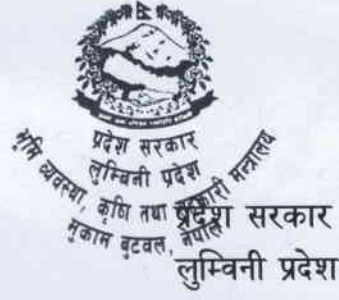 प्रदेश सरकार
लुम्बिनी प्रदेश
भूमि व्यवस्था, कृषि तथा सहकारी मन्त्रालय
मुकाम बुटवल, नेपाल
प्रदेश सरकार
लुम्विनी प्रदेश